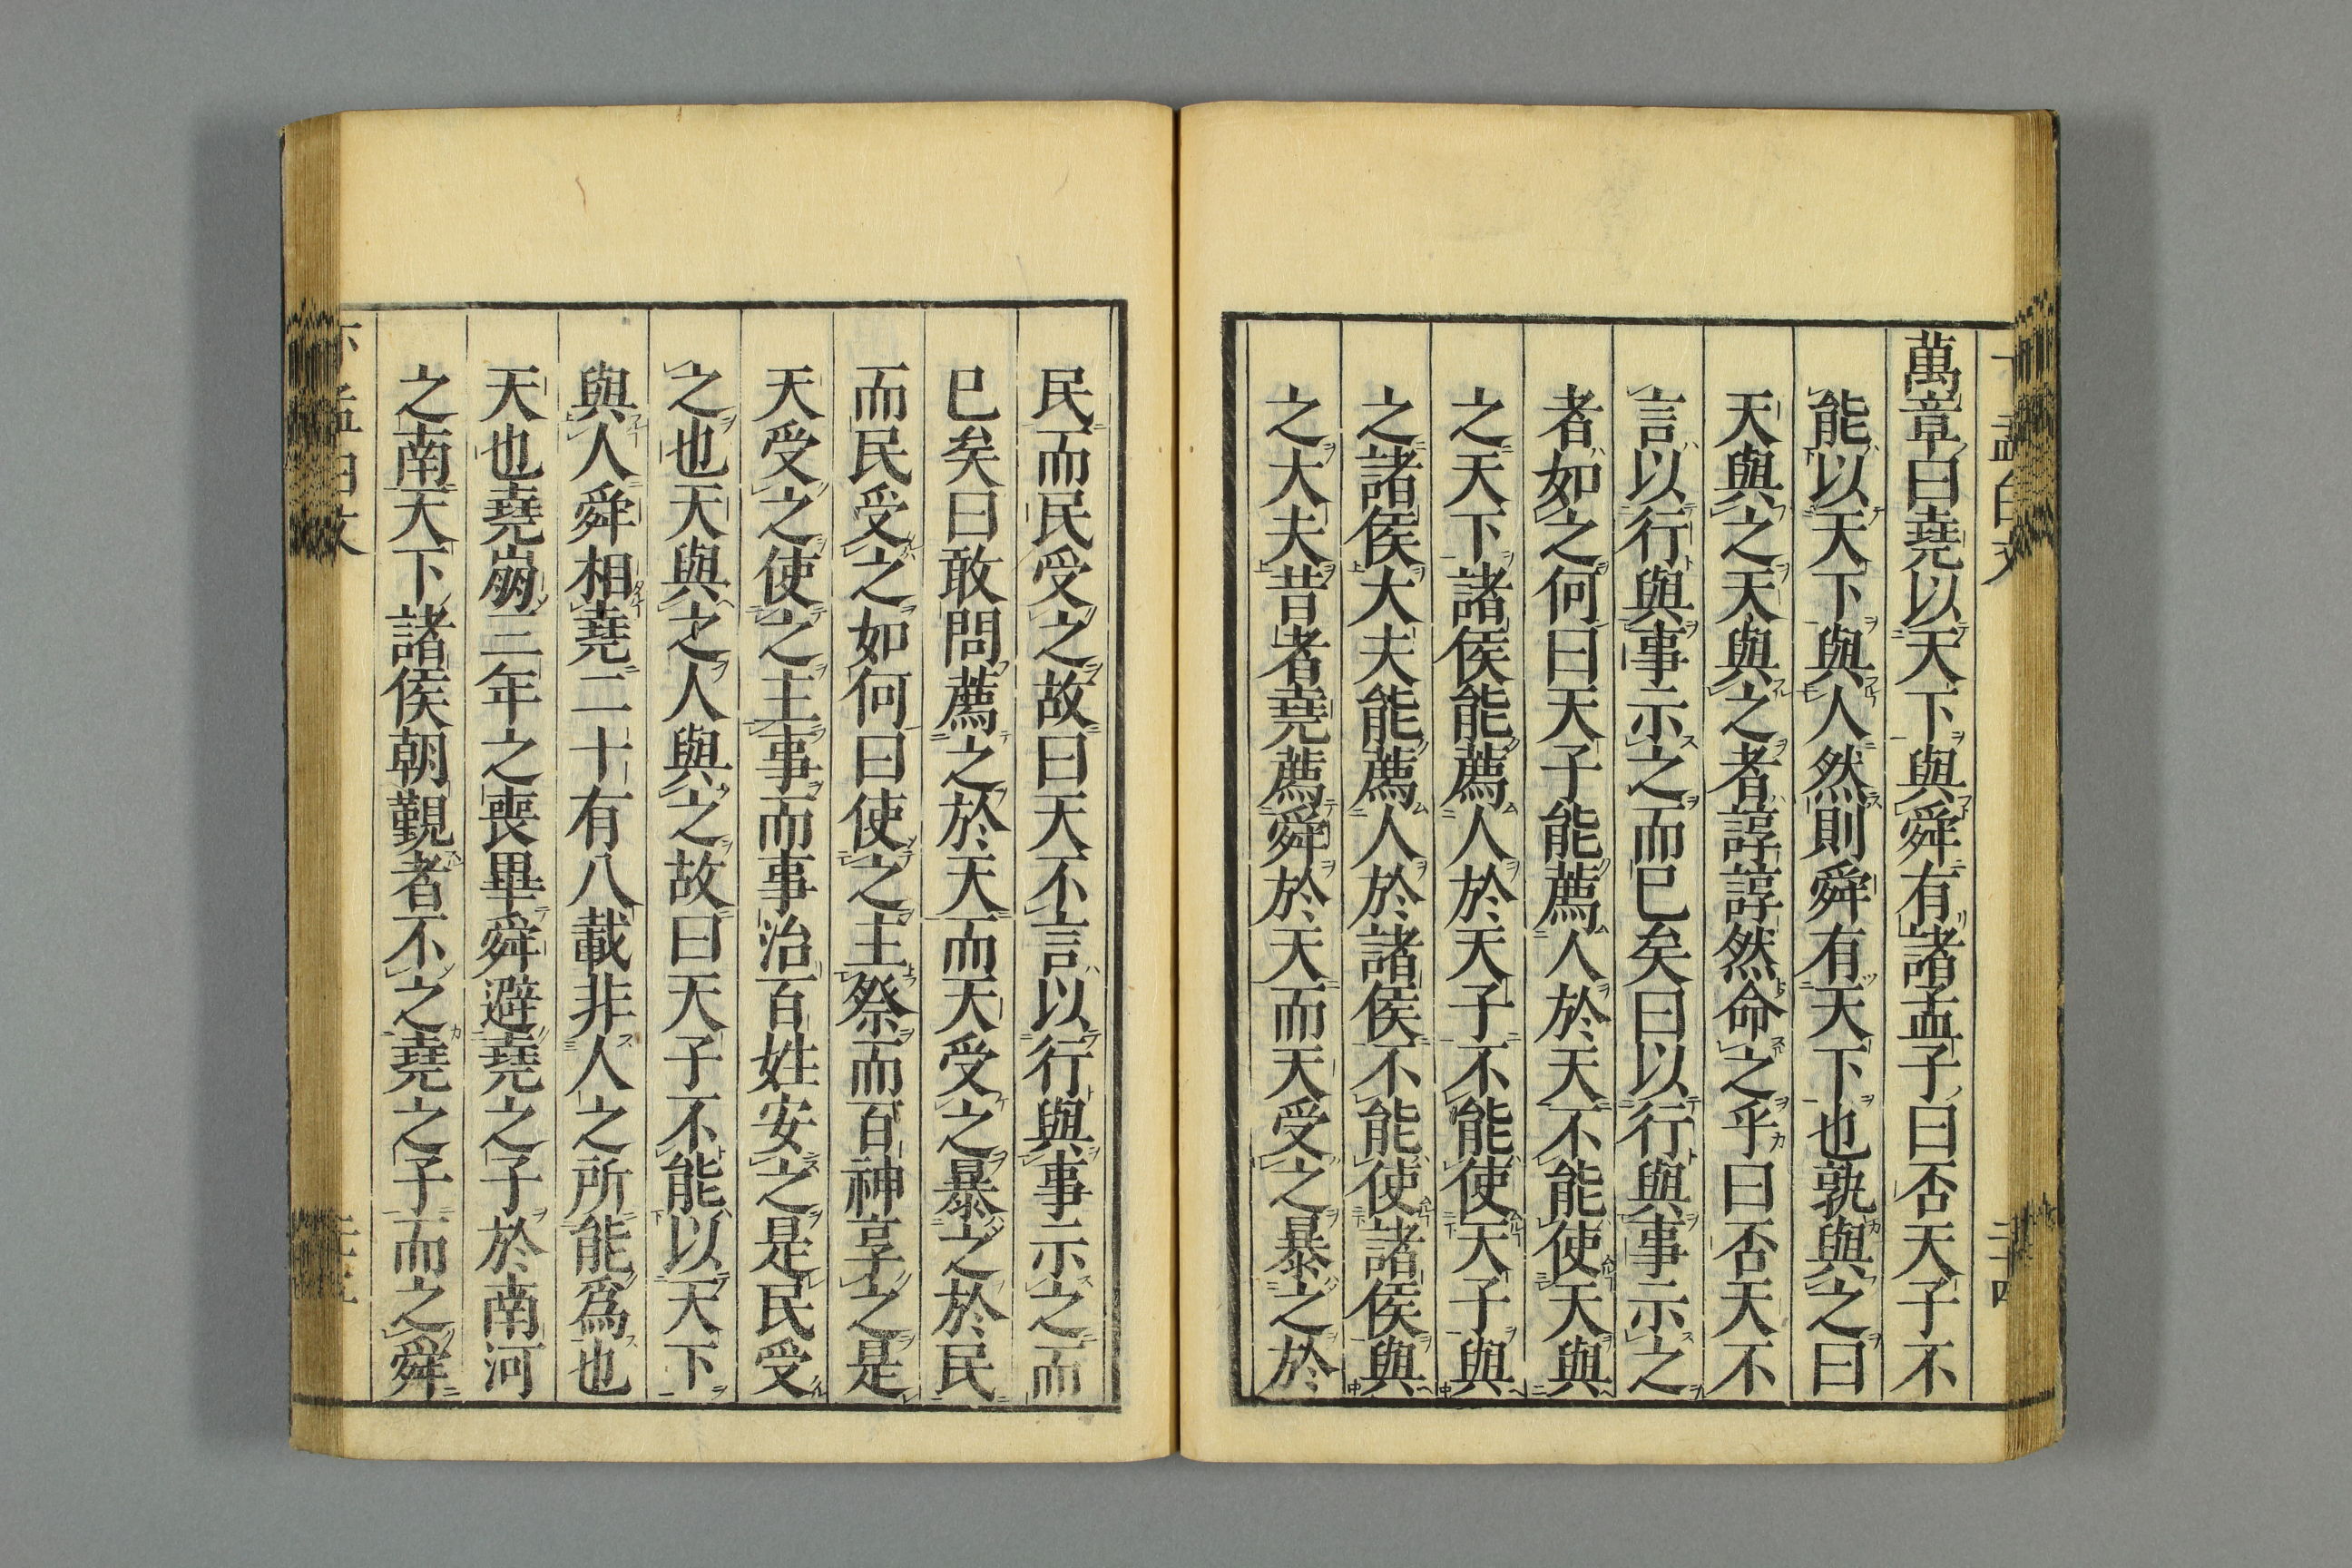 萬章曰堯以天下與舜有諸孟子曰否天子不
能以天下與人然則舜有天下也孰與之曰
天與之天與之者諄諄然命之乎曰否天不
言以行與事示之而已矣曰以行與事示之
者如之何曰天子能薦人於天不能使天與
之天下諸侯能薦人於天子不能使天子與
之諸侯大夫能薦人於諸侯不能使諸侯與
之大夫昔者堯薦舜於天而天受之暴之於
民而民受之故曰天不言以行與事示之而
已矣曰敢問薦之於天而天受之暴之於民
而民受之如何曰使之主祭而百神享之是
天受之使之主事而事治百姓安之是民受
之也天與之人與之故曰天子不能以天下
與人舜相堯二十有八載非人之所能爲也
天也堯崩三年之喪畢舜避堯之子於南河
之南天下諸侯朝覲者不之堯之子而之舜